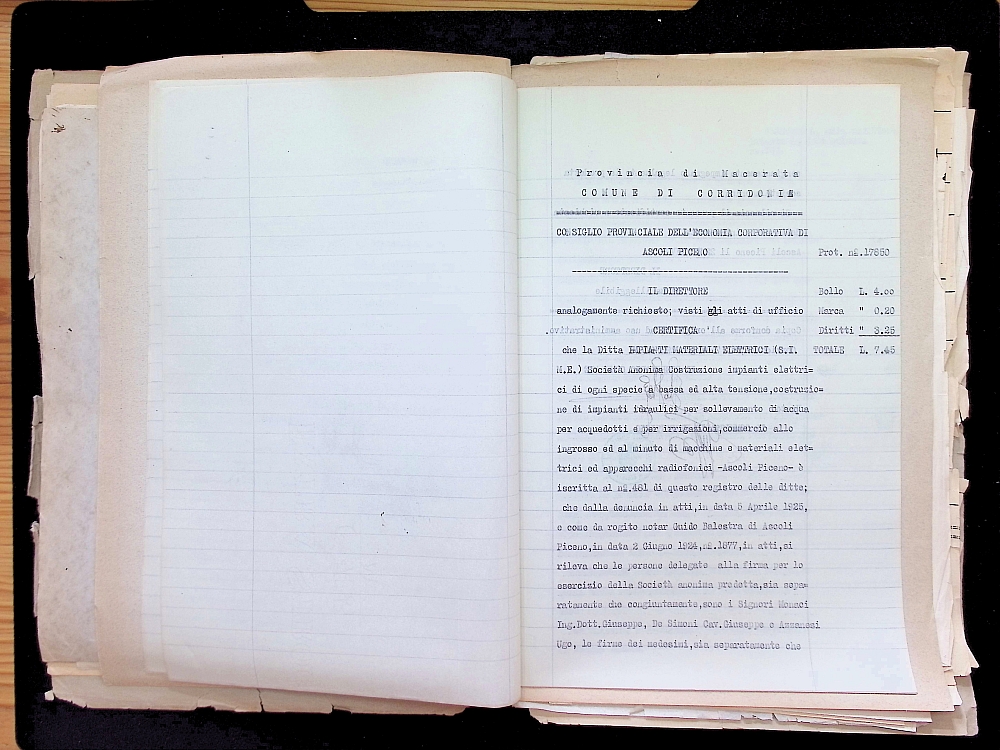 Provincia di Macerata
COMUNE DI CORRIDONIA
CONSIGLIO PROVINCIALE DELL'ECONOMIA CORPORATIVA DI
ASCOLI PICENO
Prot. nº.17650
IL DIRETTORE
Bollo L. 4.00
analogamente richiesto; visti gli atti di ufficio
Marca " 0.20
CERTIFICA
Diritti " 3.25
che la Ditta IMPIANTI MATERIALI ELETTRICI (S.I.
TOTALE L. 7.45
M.E.) Società Anonima Costruzione impianti elettri=
ci di ogni specie a bassa ed alta tensione,costruzio=
ne di impianti idraulici per sollevamento di acqua
per acquedotti e per irrigazioni,commercio allo
ingrosso ed al minuto di macchine e materiali elet=
trici ed apparecchi radiofonici -Ascoli Piceno- è
iscritta al nº.481 di questo registro delle ditte;
che dalla denuncia in atti,in data 5 Aprile 1925,
e come da rogito notar Guido Balestra di Ascoli
Piceno,in data 2 Giugno 1924,nº.1877,in atti,si
rileva che le persone delegate alla firma per lo
esercizio della Società anonima predetta,sia sepa=
ratamente che congiuntamente,sono i Signori Monaci
Ing.Dott.Giuseppe, De Simoni Cav.Giuseppe e Azzanesi
Ugo, le firme dei medesimi,sia separatamente che